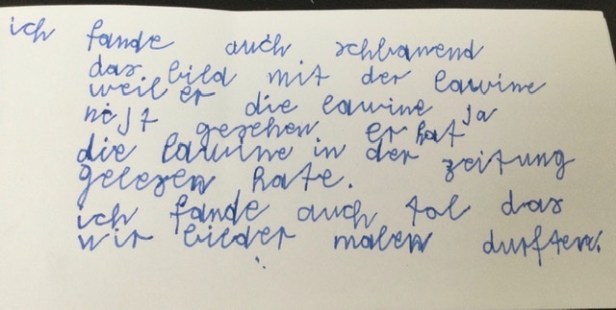 ich fande auch schbanend
das bild mit der lawine
weil er die lawine ja
nijt gesehen er hat
die lawine in der zeitung
gelesen hate.
ich fande auch tol das
wir bilder malen durften.